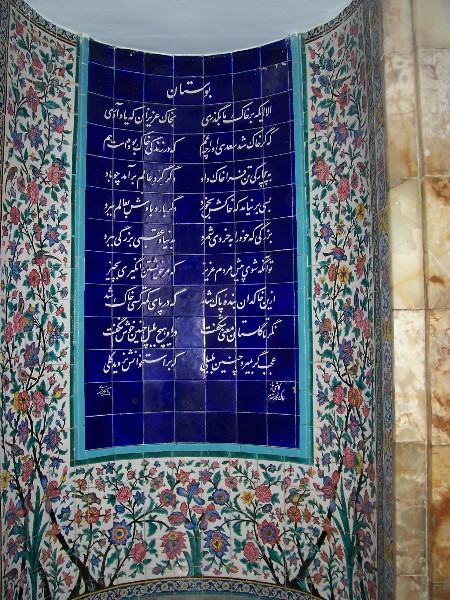 بوستان
الا ایکه بر خاک ما بگذری بخاک عزیزان که یاد آوری
که گر خاک شد سعدی او را چه غم که در زندگی خاک بوده است هم
به بیچارگی تن فرا خاک داد دگر گرد عالم برآمد چو باد
بسی برنیاید که خاکش خورد دگر باره بادش بعالم برد
بزرگی که خود را به خردی شمرد بدنیا و عقبی بزرگی ببرد
تو آنگه شوی پیش مردم عزیز که مر خویشتن را نگیری بچیز
ازین خاکدان بنده پاک شد که در پای کمتر کسی خاک شد
مگر تا گلستان معنی شکفت در او هیچ بلبل چنین خوش نگفت
عجب گر بمیرد چنین بلبلی که بر استخوانش نروید گلی